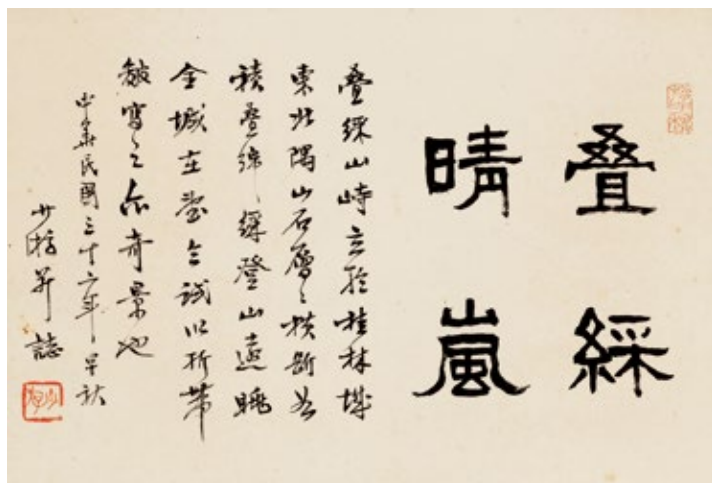 叠綵
晴嵐
叠綵山峙立於桂林城
東北隅山石層々横斷為
積叠綵登山遠眺
全城在望今試以折带
皴寫之亦奇景也
中華民國三十六年早秋
少游并誌